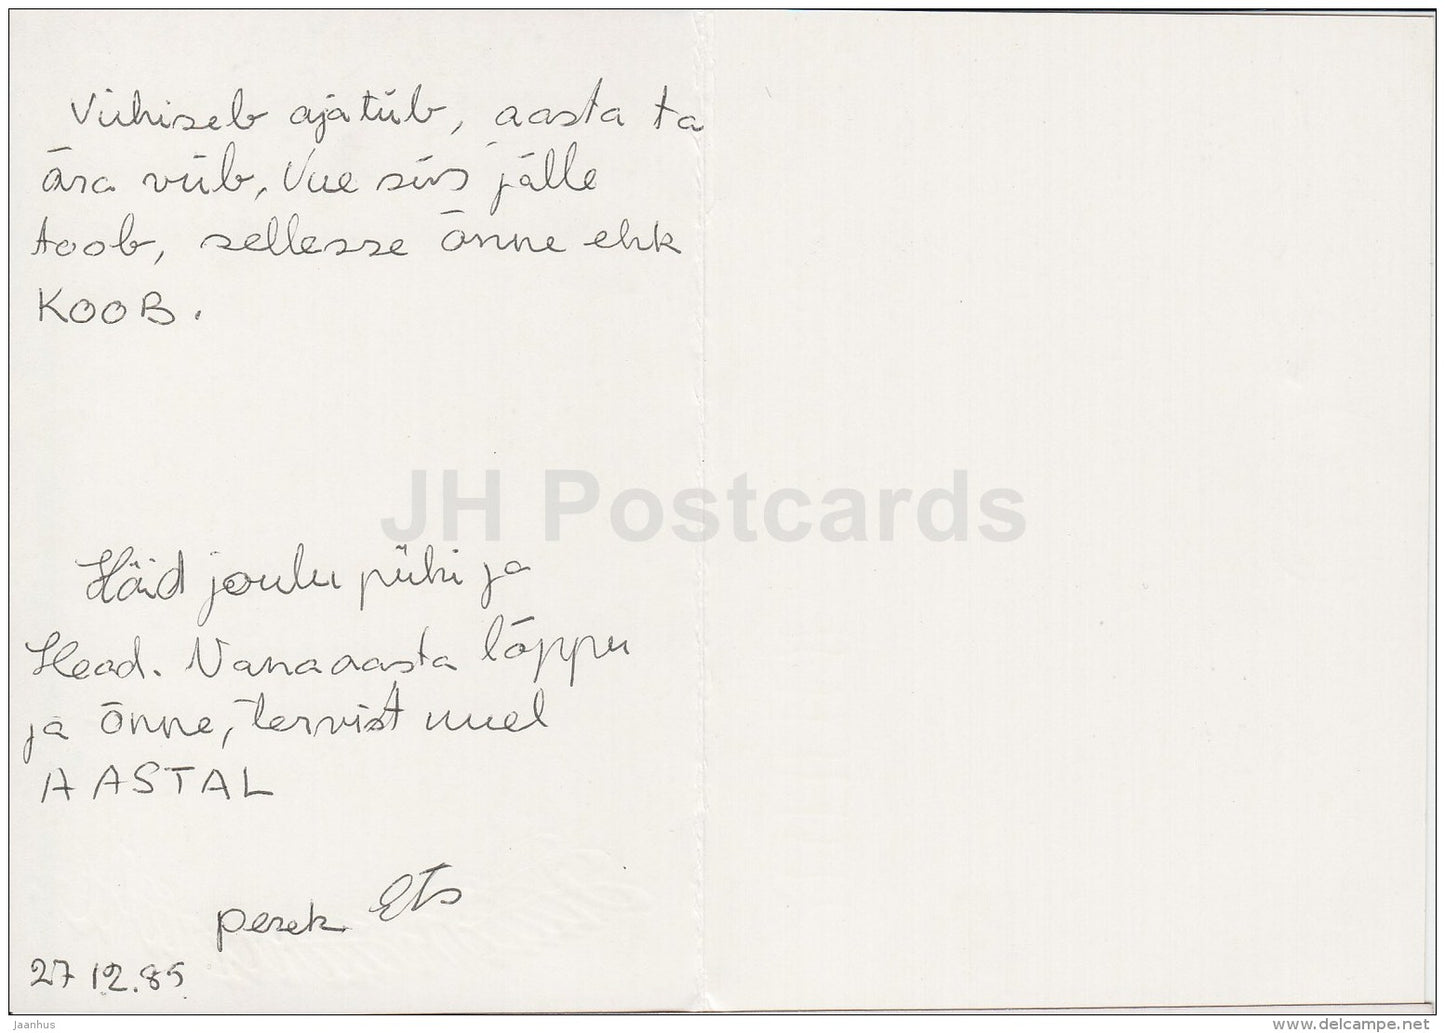 Vihiseb ajatiib, aasta ta
ära viib, Uue siis jälle
toob, sellesse õnne ehk
KOOB.
JH Postcards
Häid joulu pühi ja
Head. Vanaaasta lõppu
ja õnne, tervist uuel
AASTAL
perek Ets
27 12.85
jaanhus
www.delcampe.net